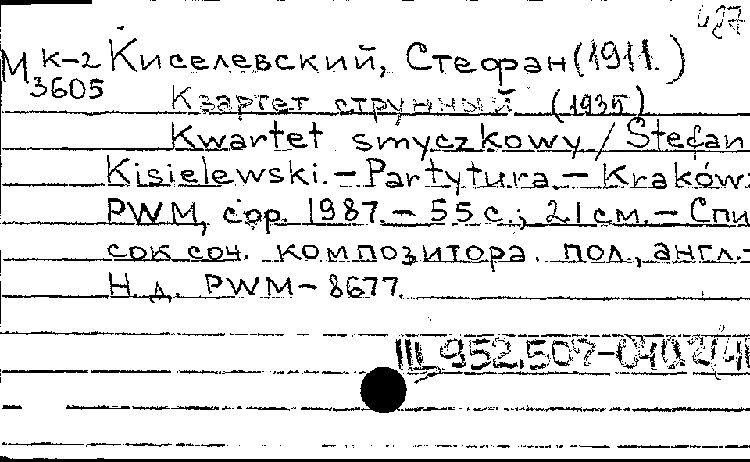 487
М К-2 Киселевский, Стефан (1911. )
3605
Квартет струнный (1935)
Kwartet smyczkowy / Stefan
Kisielewski. – Partytura. – Kraków:
PWM, cop. 1987. – 55 с.; 21 см. – Спи
сок соч. композитора. пол., англ. –
Н. д. PWM – 8677.
III 952.507-040.2(4